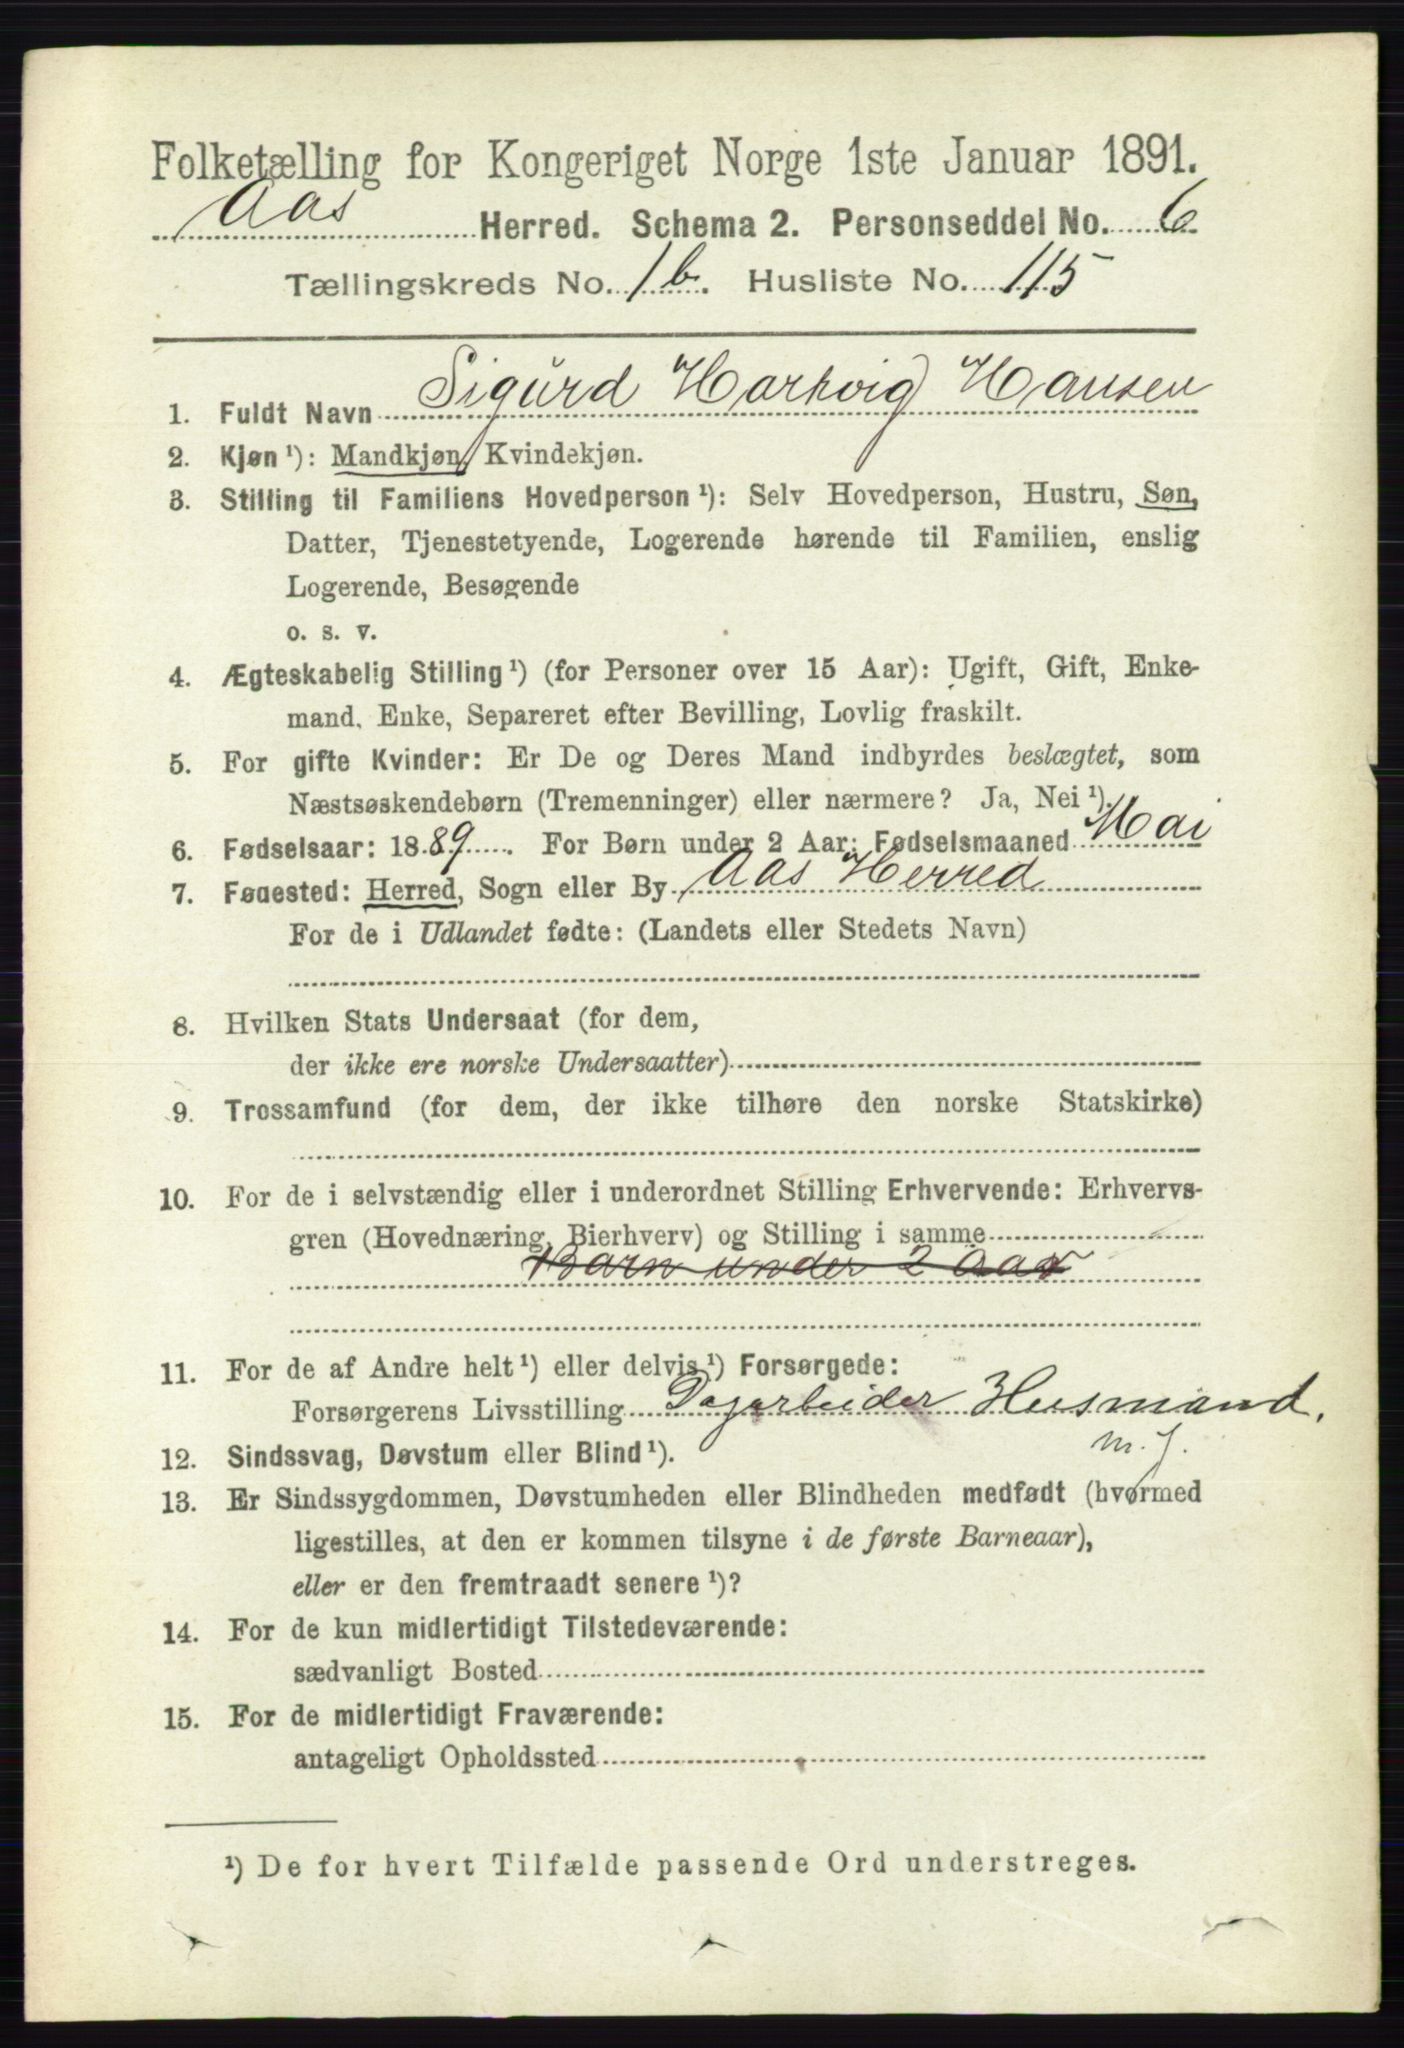 Folketælling for Kongeriget Norge 1ste Januar 1891.
Aas Herred. Schema 2. Personseddel No. 6
Tællingskreds No. 1b. Husliste No. 115
1. Fuldt Navn Sigurd Hartvig Hansen
2. Kjøn ¹): Mandkjøn, Kvindekjøn.
3. Stilling til Familiens Hovedperson ¹): Selv Hovedperson, Hustru, Søn,
Datter, Tjenestetyende, Logerende hørende til Familien, enslig
Logerende, Besøgende
o. s. v.
4. Ægteskabelig Stilling ¹) (for Personer over 15 Aar): Ugift, Gift, Enke-
mand, Enke, Separeret efter Bevilling, Lovlig fraskilt.
5. For gifte Kvinder: Er De og Deres Mand indbyrdes beslægtet, som
Næstsøskendebørn (Tremenninger) eller nærmere? Ja, Nei ¹).
6. Fødselsaar: 1889. For Børn under 2 Aar: Fødselsmaaned Mai
7. Fødested: Herred, Sogn eller By Aas Herred
For de i Udlandet fødte: (Landets eller Stedets Navn)
8. Hvilken Stats Undersaat (for dem,
der ikke ere norske Undersaatter)
9. Trossamfund (for dem, der ikke tilhøre den norske Statskirke)
10. For de i selvstændig eller i underordnet Stilling Erhvervende: Erhvervs-
gren (Hovednæring, Bierhverv) og Stilling i samme
Barn under 2 Aar
11. For de af Andre helt ¹) eller delvis ¹) Forsørgede:
Forsørgerens Livsstilling Dagarbeider Husmand.
m. J.
12. Sindssvag, Døvstum eller Blind ¹).
13. Er Sindssygdommen, Døvstumheden eller Blindheden medfødt (hvormed
ligestilles, at den er kommen tilsyne i de første Barneaar),
eller er den fremtraadt senere ¹)?
14. For de kun midlertidigt Tilstedeværende:
sædvanligt Bosted
15. For de midlertidigt Fraværende:
antageligt Opholdssted
¹) De for hvert Tilfælde passende Ord understreges.